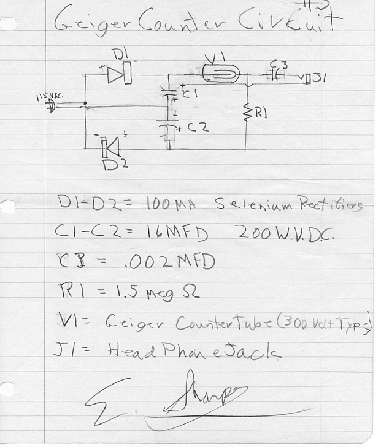 #3
Geiger Counter Circuit
D1
V1
C3
J1
115 VAC
C1
R1
C2
D2
D1-D2 = 100MA Selenium Rectifiers
C1-C2 = 16MFD 200 W.V.DC.
C3 = .002 MFD
R1 = 1.5 meg Ω
V1 = Geiger Counter Tube (300 Volt Type)
J1 = Head Phone Jack
E. Sharpe